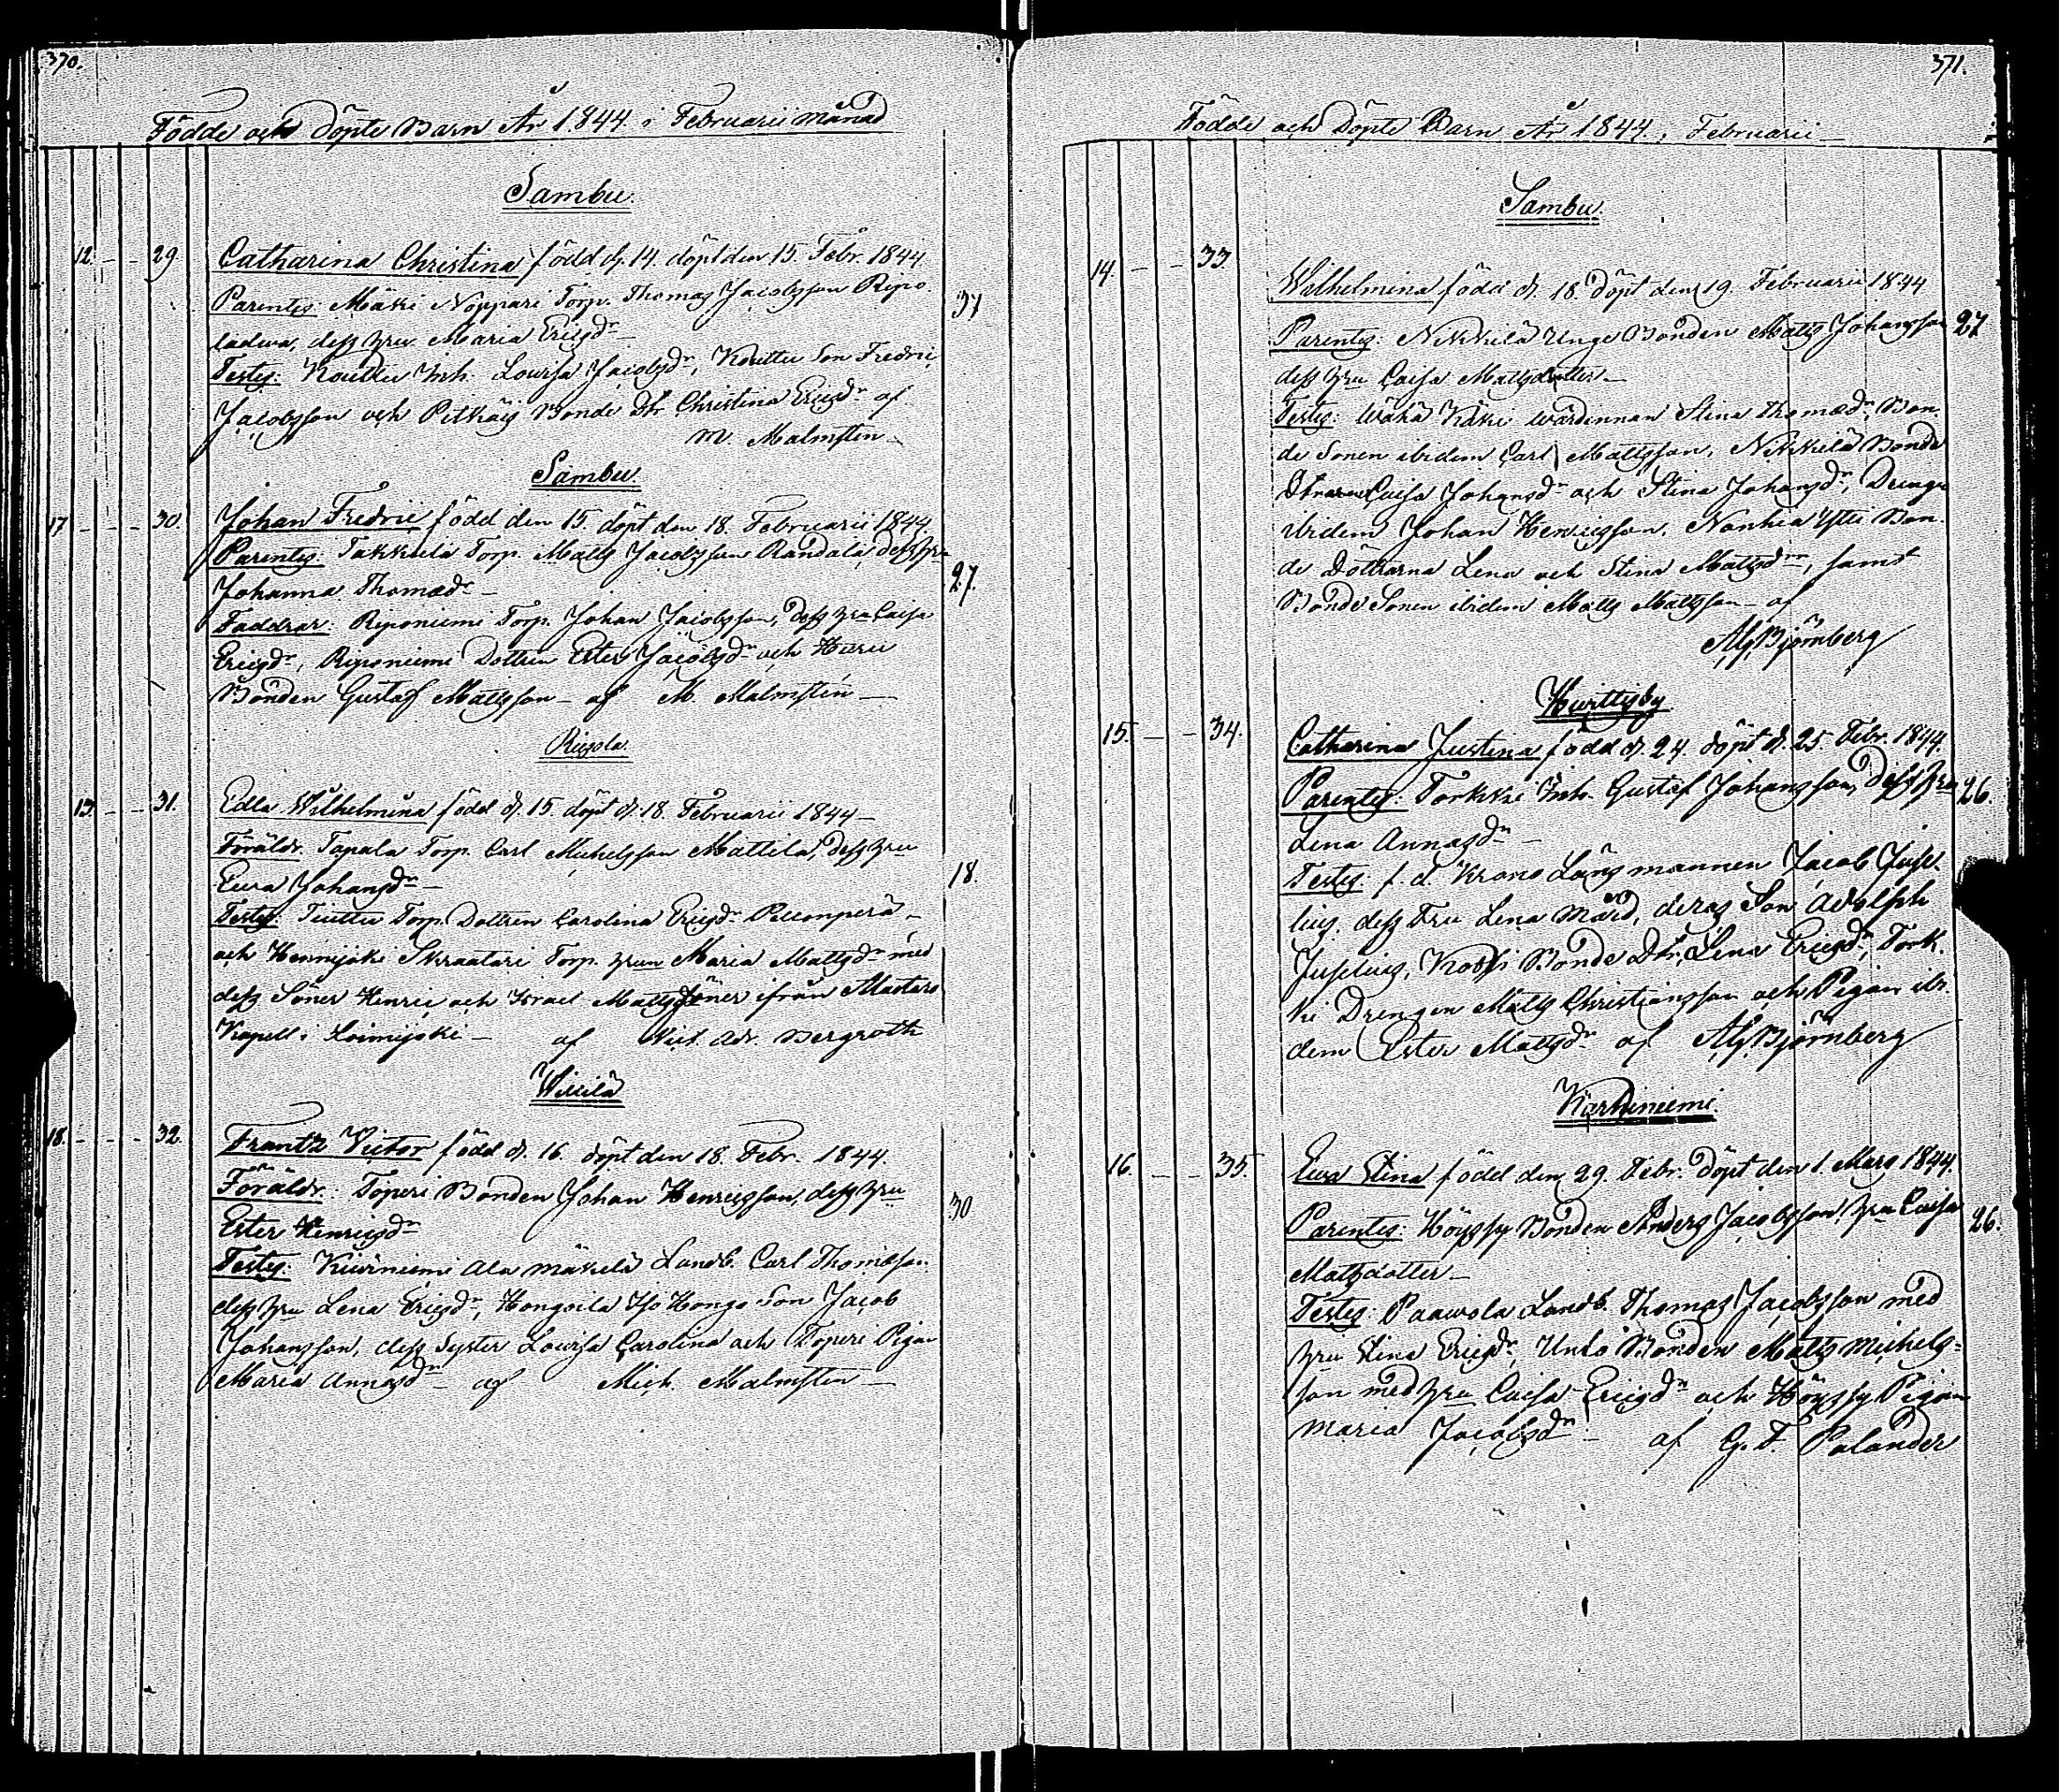 370.
Födde och Döpte Barn År 1844 i Februarii månad
Sambu.
12. - - 29. Catharina Christina född d. 14. döpt den 15. Febr. 1844.
Parentes: Mäki Noppari Torp. Thomas Jacobsson Ripo- 37
ladwa, dess hru Maria Ericsdr
Testes: Kouttu Inh. Lovisa Jacobsdr, Kouttu Son Fredric
Jacobsson och Pitkäis Bonde Dtr Christina Ericsdr af
M. Malmstén
Sambu.
17 - - - 30. Johan Fredric född den 15. döpt den 18. Februarii 1844
Parentes: Takkula Torp. Matts Jacobsson Randala, dess hru
Johanna Thomædr - 27.
Faddrar: Riponiemi Torp. Johan Jacobsson, dess hru Caisa
Ericsdr, Riponiemi Dottren Ester Jacobsdr och
Bonden Gustaf Mattsson - af M. Malmstén
13. - - 31. Edla Wilhelmina född d. 15. döpt d. 18. Februarii 1844 -
Föräldr. Tapala Torp. Carl Michelsson Mattila, dess hru
Ewa Johansdr - 18.
Testes: Torp. Dottren Carolina Ericsdr
och Hennijoki Skraatari Torp. hrun Maria Mattsdr med
dess Söner Henric och Israel Mattssöner ifrån
Kapell i Loimijoki - af Vict. Adr. Bergroth
18. - - - 32. Frantz Victor född d. 16. döpt den 18. Febr. 1844.
Föräldr: Töperi Bonden Johan Henricsson, dess hru
Ester Henricsdr 30
Testes: Kiurniemi Ala Mäkelä Landb. Carl Thomasson
dess hru Lena Ericsdr, Hongoila Iso Hongo Son Jacob
Johansson, dess Syster Lovisa Carolina och Töperi Pigan
Maria Annasdr - af Mich. Malmstén
371.
Födde och Döpte Barn År 1844, Februarii
Sambu.
14. - - 33. Wilhelmina född d. 18. döpt den 19. Februarii 1844
Parentes: Nikkilä Unge Bonden Matts Johansson 27
dess hru Caisa Mattsdotter -
Testes: Wähä Käki wärdinnan Stina Thomædr, Bon-
de Sonen ibidem Carl Mattsson, Nikkilä Bonde
Dtrarne Caisa Johansdr och Stina Johansdr, Drengn
ibidem Johan Henricsson, Nanhia Ylli Bon-
de Döttrarna Lena och Stina Mattsdr, samt
Bonde Sonen ibidem Matts Mattsson - af
Björnberg
Huittisby
15. - - 34. Catharina Justina född d. 24. döpt d. 25. Febr. 1844.
Parentes: Torkki Inh. Gustaf Johansson, dess hru 26.
Lena Annasdr -
Testes: f. d. Krono Länsmannen Jacob Juse-
lius, dess Fru Lena Mård, deras Son Adolph
Juselius, Bonde Dtr. Lena Ericsdr, Tork-
ki Drengen Matts Christiansson och Pigan ibi-
dem Ester Mattsdr af Björnberg
Karhiniemi
16. - - 35. Ewa Stina född den 29. Febr. döpt den 1. Mars 1844.
Parentes: Höyssy Bonden Anders Jacobsson, hru Caisa 26.
Mattsdotter -
Testes: Paawola Landb. Thomas Jacobsson med
hru Stina Ericsdr, Unto Bonden Matts Michels-
son med hru Caisa Ericsdr och Höyssy Pigan
Maria Jacobsdr - af G. F. Palander